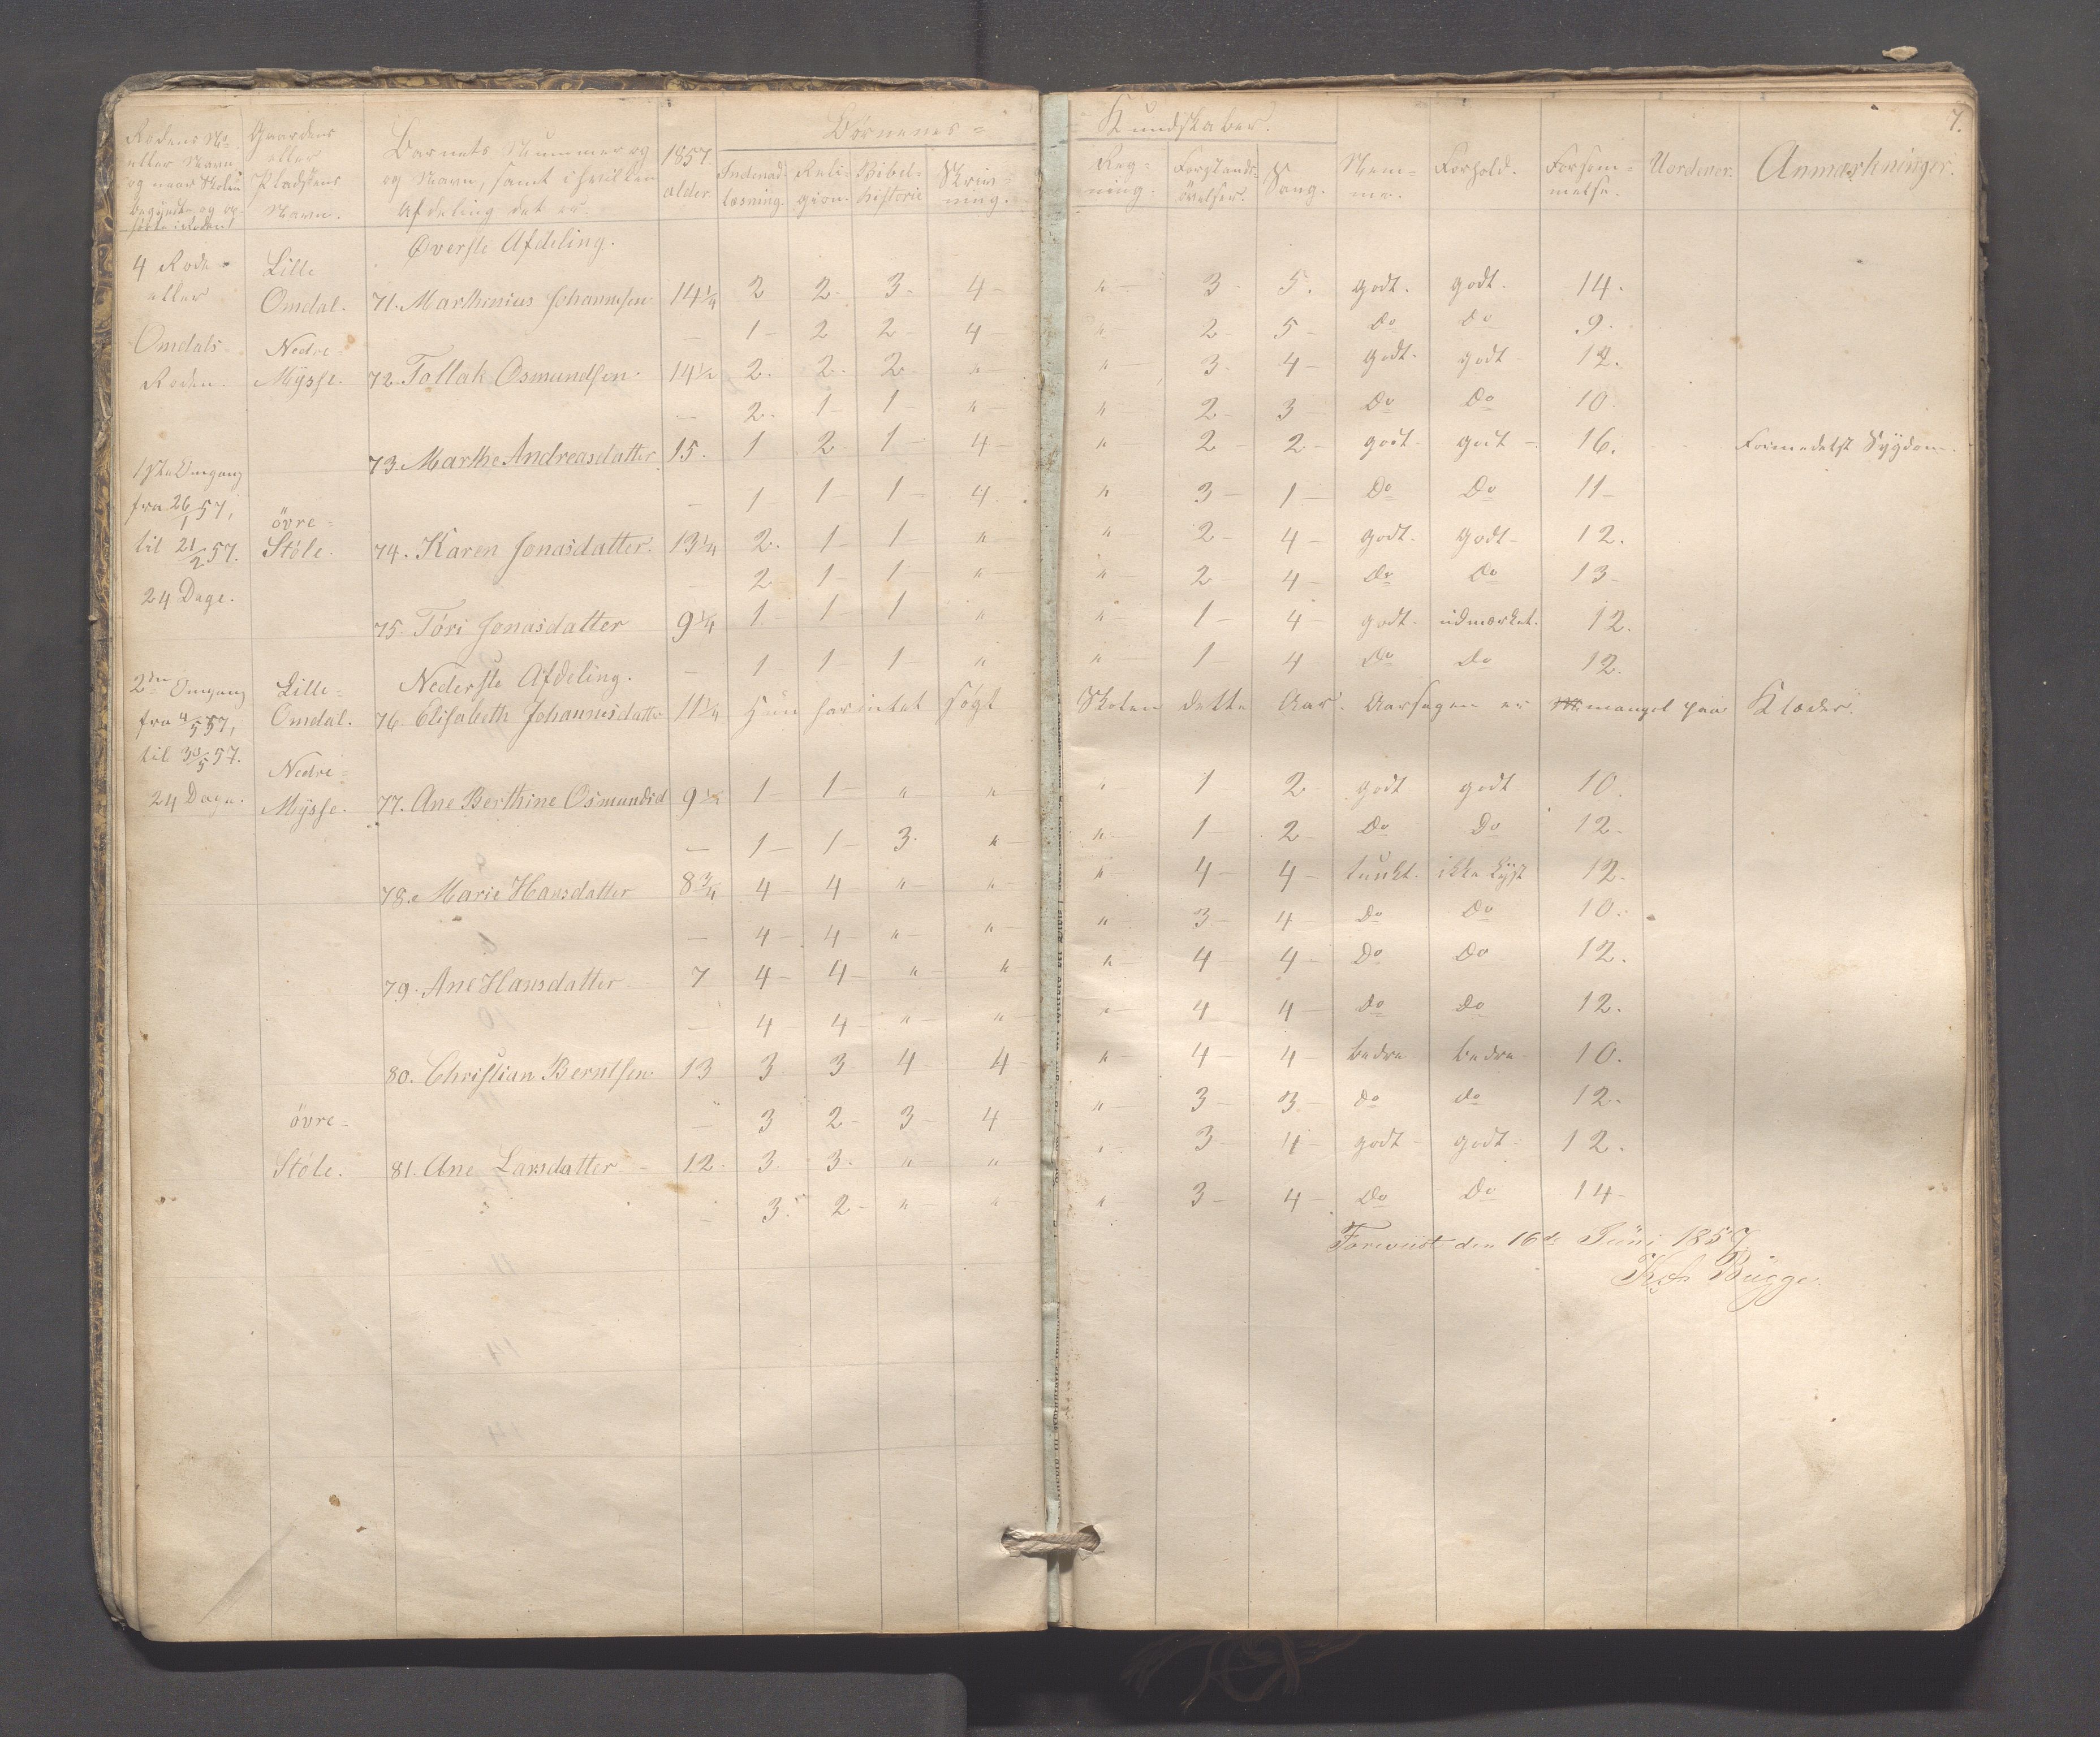 Børnenes = Kundskaber. 7.
Rodens No. eller Navn og naar Skolen begyndte og op-
Gaardens eller Pladsens Navn.
Barnets Nummer og Navn, samt i hvilken Afdeling det er.
1857. alder.
Indenad-læsning.
Reli-gion.
Bibel-historie
Skriv-ning.
Reg-ning.
Forstands-övelser.
Sang.
Nem-me.
Forhold.
Forsøm-melse.
Uordener.
Anmærkninger.
Överste Afdeling.
4 Rode eller Omdals Roden.
1ste Omgang fra 26/1 57, til 21/2 57. 24 Dage.
2den Omgang fra 4/5 57, til 30/5 57. 24 Dage.
Lille Omdal. 71. Marthinius Johannesen 14 1/4 2 2 3 4 " 3 5. godt. godt. 14.
— 1 2 2 4 " 2 5 Do Do 9.
Nedre Mysse. 72. Tollak Osmundsen 14 1/2 2. 2. 2 " " 3 4 godt. godt 12.
— 2 1 1 " " 2 3 Do Do 10.
73. Marthe Andreasdatter 15. 1 2 1 4 " 2 2 godt. godt 16. Formedelst Sygdom.
— 1 1 1 4 " 3 1 Do Do 11
övre Stóle. 74. Karen Jonasdatter. 13 1/4 2. 1 1 " " 2 4 godt. godt 12.
2 1 1 " " 2 4 Do Do 13
75. Tóri Jonasdatter 9 1/4 1 1 1 " " 1 4 godt. udmærket. 12.
— 1 1 1 " " 1 4 Do Do 12.
Nederste Afdeling.
Lille Omdal. 76. Elisabeth Johannesdatter 11 1/4 Hun har intet søgt Skolen dette Aar. Aarsagen er mangel paa Klæder.
Nedre Mysse. 77. Ane Berthine Osmundsd 9 1/4 1 1 " " " 1 2 godt godt 10.
— 1 1 3 " " 1 2 Do Do 12.
78. Marie Hansdatter 8 3/4 4 4 " " " 4 4 tungt. ikke Lyst 12.
— 4 4 " " " 3 4 Do Do 10.
79. Ane Hansdatter 7 4 4 " " " 4 4 Do Do 12.
— 4 4 " " " 4 4 do do 12.
80. Christian Berntsen 13 3 3 4 4 " 4 4 bedre bedre 10.
— 3 2 3 4 " 3 3 do do 12.
övre Stóle. 81. Ane Larsdatter 12. 3. 3. " " " 3 4 godt godt 12.
— 3. 2 " " " 3 4 Do Do 14
Foreviist den 16de Juni 1857
Bugge.